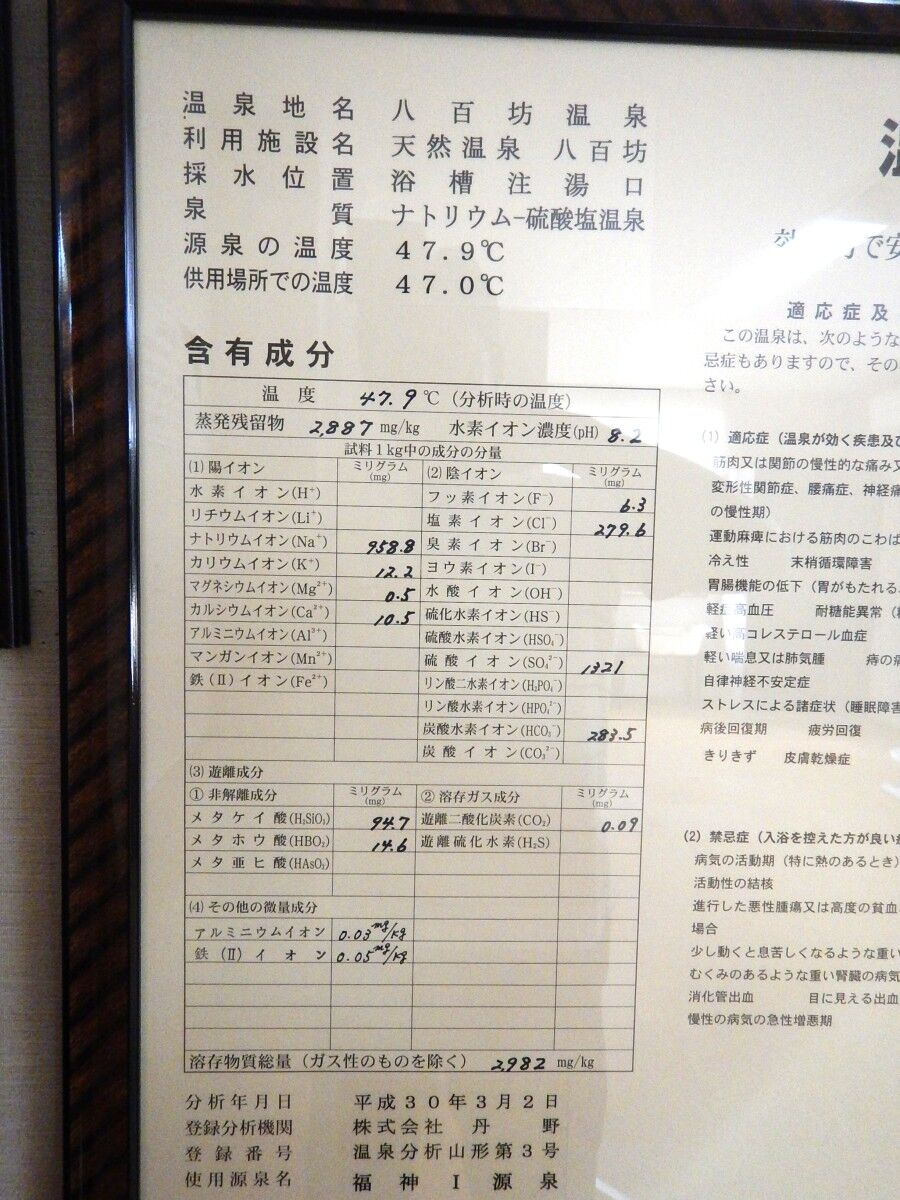 温泉地名 八百坊温泉
利用施設名 天然温泉 八百坊
採水位置 浴槽注湯口
泉質 ナトリウム-硫酸塩温泉
源泉の温度 47.9℃
供用場所での温度 47.0℃
含有成分
温度 47.9℃(分析時の温度)
蒸発残留物 2,887 mg/kg 水素イオン濃度(pH) 8.2
試料1kg中の成分の分量
(1) 陽イオン ミリグラム(mg) (2) 陰イオン ミリグラム(mg)
水素イオン(H⁺) フッ素イオン(F⁻) 6.3
リチウムイオン(Li⁺) 塩素イオン(Cl⁻) 279.6
ナトリウムイオン(Na⁺) 958.8 臭素イオン(Br⁻)
カリウムイオン(K⁺) 12.2 ヨウ素イオン(I⁻)
マグネシウムイオン(Mg²⁺) 0.5 水酸イオン(OH⁻)
カルシウムイオン(Ca²⁺) 10.5 硫化水素イオン(HS⁻)
アルミニウムイオン(Al³⁺) 硫酸水素イオン(HSO₄⁻)
マンガンイオン(Mn²⁺) 硫酸イオン(SO₄²⁻) 1321
鉄(II)イオン(Fe²⁺) リン酸二水素イオン(H₂PO₄⁻)
リン酸水素イオン(HPO₄²⁻)
炭酸水素イオン(HCO₃⁻) 283.5
炭酸イオン(CO₃²⁻)
(3) 遊離成分
① 非解離成分 ミリグラム(mg) ② 溶存ガス成分 ミリグラム(mg)
メタケイ酸(H₂SiO₃) 94.7 遊離二酸化炭素(CO₂) 0.09
メタホウ酸(HBO₂) 14.6 遊離硫化水素(H₂S)
メタ亜ヒ酸(HAsO₂)
(4) その他の微量成分
アルミニウムイオン 0.03mg/kg
鉄(II)イオン 0.05mg/kg
溶存物質総量(ガス性のものを除く) 2,982 mg/kg
分析年月日 平成30年3月2日
登録分析機関 株式会社 丹野
登録番号 温泉分析山形第3号
使用源泉名 福神I源泉
で安
適応症及
この温泉は、次のような
忌症もありますので、その
さい。
(1) 適応症(温泉が効く疾患及び
筋肉又は関節の慢性的な痛み又
変形性関節症、腰痛症、神経痛
の慢性期)
運動麻痺における筋肉のこわば
冷え性 末梢循環障害
胃腸機能の低下(胃がもたれる、
軽症高血圧 耐糖能異常(
軽い高コレステロール血症
軽い喘息又は肺気腫 痔の痛
自律神経不安定症
ストレスによる諸症状(睡眠障害
病後回復期 疲労回復
きりきず 皮膚乾燥症
(2) 禁忌症(入浴を控えた方が良い
病気の活動期(特に熱のあるとき)
活動性の結核
進行した悪性腫瘍又は高度の貧血
場合
少し動くと息苦しくなるような重い
むくみのあるような重い腎臓の病気
消化管出血 目に見える出血
慢性の病気の急性増悪期